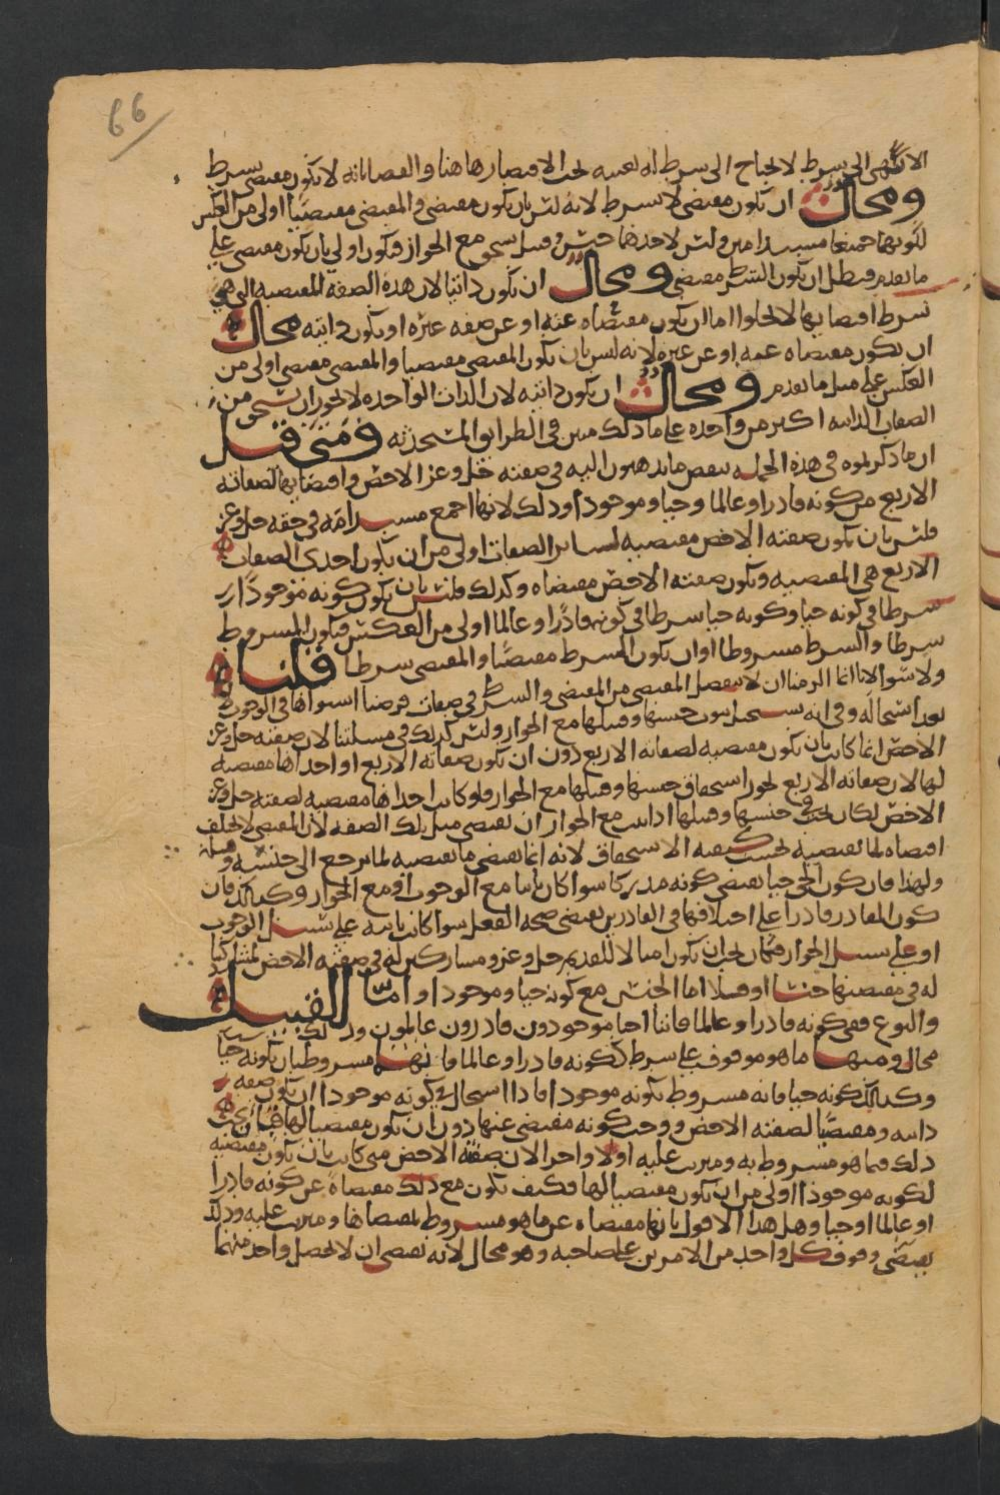 66
الا تنتهى الى شرط لاحتاج الى شرط له بعينه تحت الاقتصار هاهنا والقضا بانه لا يكون مقتضى بشرط
ومحال ان تكون مقتضى لا شرط لانه ليس بان يكون مقتضى والمقتضى مقتضيا اولى من العكس
لكونهما جميعا مستندا من وليس لاحدهما جنس وقبيل مع الجواز فيكون اولى بان يكون مقتضى على
ما تقدم فبطل ان يكون الشرط مقتضى ومحال ان يكون ذاتيا لان هذه الصفة المقتضيه الى هى
شرط اقتضا بها لا تخلوا اما ان يكون مقتضاه عنه او عن صفه غيره او يكون ذاتيه محال
ان تكون مقتضاه عنه او عن غيره لانه ليس بان يكون المقتضى مقتضيا والمقتضى مقتضى اولى من
العكس على مثل ما تقدم ومحال ان يكون ذاتيه لان الذات الواحده لا يجوز ان تستحق من
الصفات الذاتيه اكثر من واحده على ما ذلك مبين فى الطرايق المستحدثه ومتى قيل
ان ما ذكرتموه فى هذه الجمله ينقض ما تذهبون اليه فى صفته جل وعز الاخص واقتضايها لصفاته
الاربع من كونه قادرا وعالما وحيا وموجودا وذلك لانها اجمع مستدامه فى حقه جل وعز
فليس بان تكون صفته الاخص مقتضيه لساير الصفات اولى من ان يكون احدى الصفات
الاربع هى المقتضيه وتكون صفته الاخص مقتضاه وكذلك فليس بان يكون كونه موجودا
شرطا فى كونه حيا وكونه حيا شرطا فى كونه قادرا وعالما اولى من العكس فيكون المشروط
شرطا والشرط مشروطا او ان يكون الشرط مقتضيا والمقتضى شرطا قلنا
ولا سوا لانا انما الزمنا ان لا ينفصل المقتضى من المقتضى والشرط فى صفات فرضنا استواها فى الوجوب
بعد استحاله وفى انه يستحيل ثبوت جنسها وقبيلها مع الجواز وليس كذلك فى مسئلتنا لان صفته جل وعز
الاخص انما كانت بان تكون مقتضيه لصفاته الاربع دون ان تكون صفاته الاربع او احداها مقتضيه
لها لان صفاته الاربع تجوز استحقاق جنسها وقبيلها مع الجواز فلو كانت احداها مقتضيه لصفته جل وعز
الاخص لكان يجب فى جنسها وقبيلها اذا ثبت مع الجواز ان تقتضى مثل تلك الصفه لان المقتضى لا يختلف
اقتضاه لما تقتضيه بحسب كيفيه الاستحقاق لانه انما يقتضى ما يقتضيه لما يرجع الى جنسه وقبيله
ولهذا فان كون الحى حيا يقتضى كونه مدركا سوا كان ثابتا مع الوجوب او مع الجواز وكذلك فان
كون القادر قادرا على اختلافها فى القادرين يقتضى صحه الفعل سوا كانت ثابته على سبيل الوجوب
او على سبيل الجواز فكان يجب ان يكون امثالا للقديم جل وعز ومشاركين له فى صفته الاخص لمشاركتنا
له فى مقتضيها جنسا او قبيلا اما الجنس مع كونه حيا وموجودا واما القبيل
والنوع ففى كونه قادرا وعالما فاننا احيا موجودون قادرون عالمون وذلك
محال ومنها ما هو موقوف على شرط ككونه قادرا وعالما فانهما مشروطان بكونه حيا
وكذلك كونه حيا فانه مشروط بكونه موجودا فاذا استحال فى كونه موجودا ان تكون صفه
ذاتيه ومقتضيا لصفته الاخص ووجب كونه مقتضى عنها دون ان يكون مقتضيا لها فبان يجب
ذلك فيما هو مشروط به ومترتب عليه اولا واحرا لان صفته الاخص متى كانت بان تكون مقتضيه
لكونه موجودا اولى من ان يكون مقتضيا لها فكيف تكون مع ذلك مقتضاه عن كونه قادرا
او عالما او حيا وهل هذا الا قول بانها مقتضاه عن ما هو مشروط بمقتضاها ومترتب عليه وذلك
يقتضى وقوف كل واحد من الامرين على صاحبه وهو محال لانه يقتضى ان لا يحصل واحد منهما